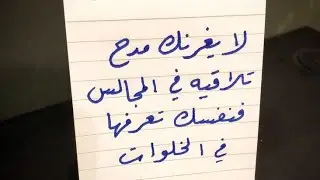 لا يغرنك مدح
تلاقيه في المجالس
فنفسك تعرفها
في الخلوات